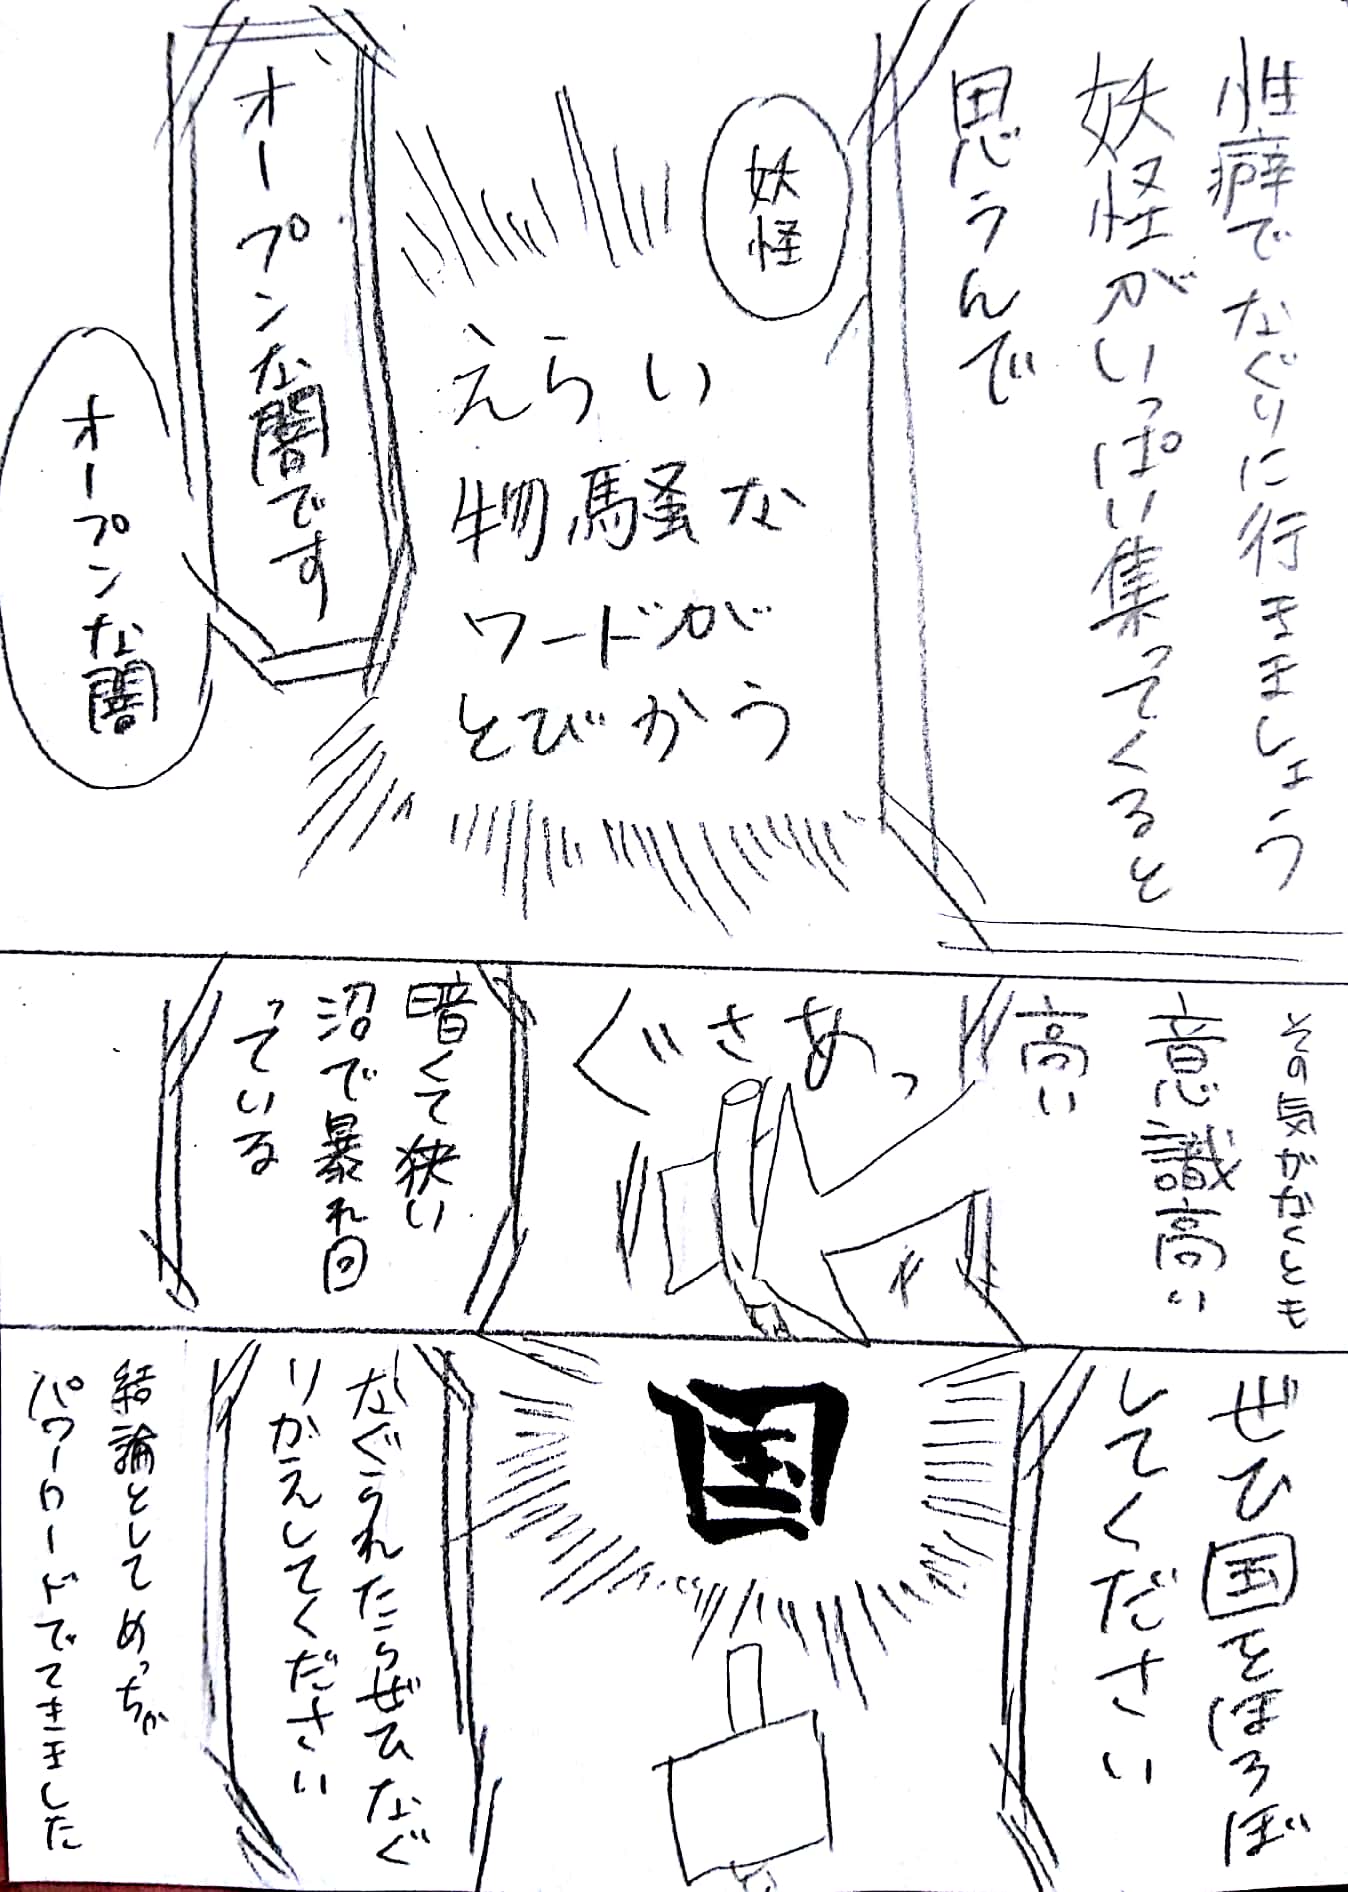 性癖でなぐりに行きましょう
妖怪がいっぱい集ってくると
思うんで
妖怪
えらい
物騒な
ワードが
とびかう
オープンな闇です
オープンな闇
その気がなくとも
意識高い
高い
ぐさあっ
暗くて狭い
沼で暴れ回
っている
ぜひ国をほろぼ
してください
国
なぐられたらぜひなぐ
りかえしてください
結論としてめっちゃ
パワーワードでてきました